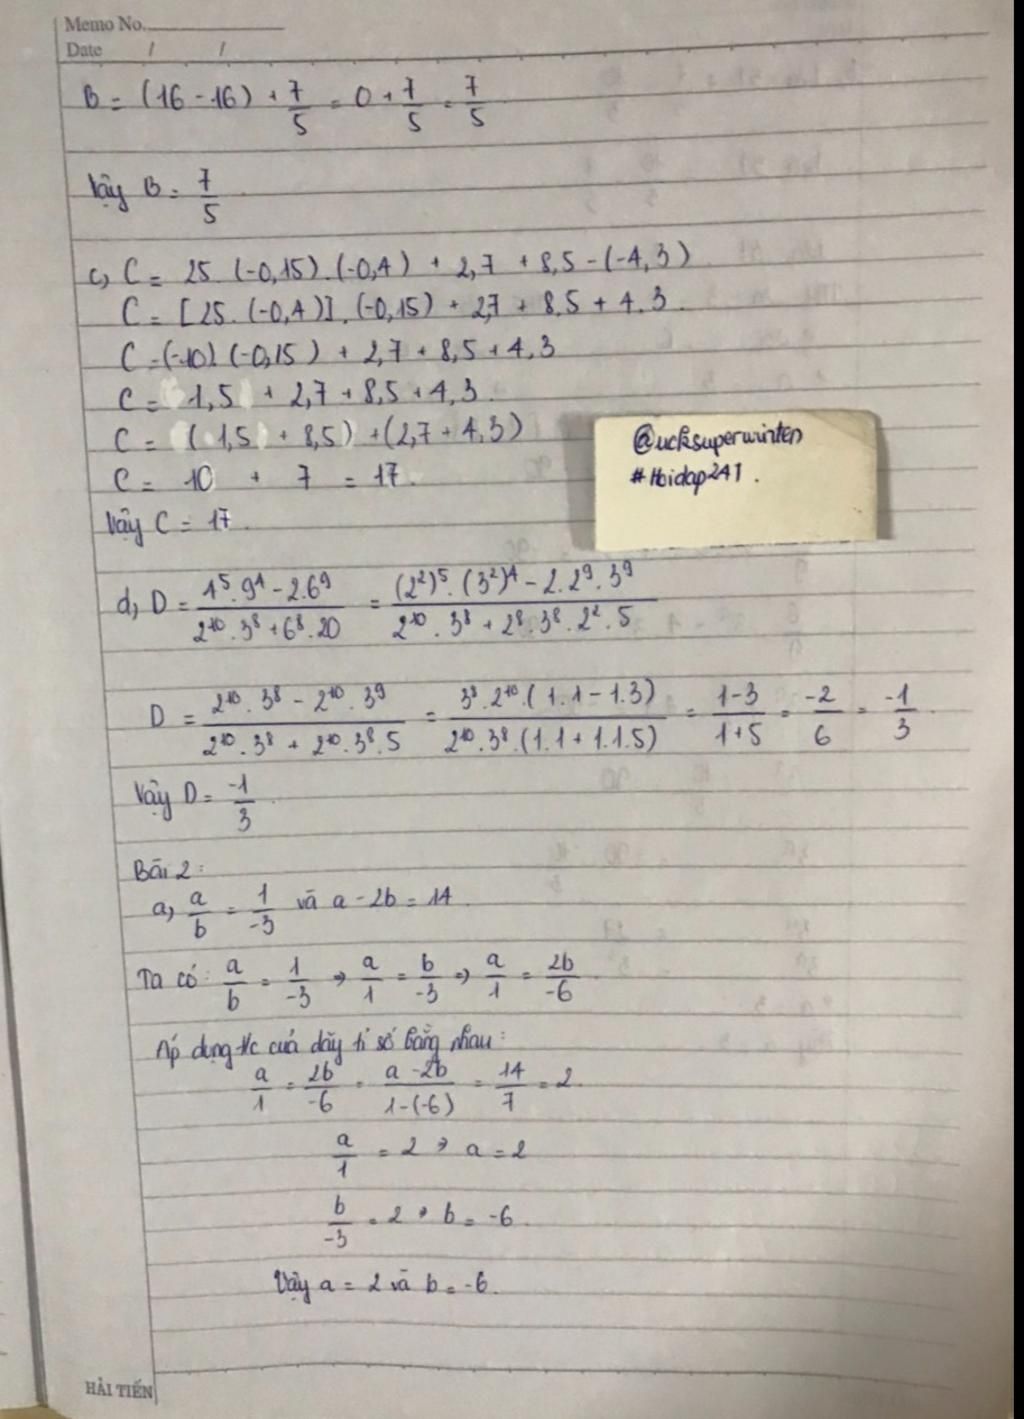 Memo No.
Date / /
B = (16 - 16) + 7/5 = 0 + 7/5 = 7/5
Vậy B = 7/5
c, C = 25.(-0,15).(-0,4) + 2,7 + 8,5 - (-4,3)
C = [25.(-0,4)].(-0,15) + 2,7 + 8,5 + 4,3.
C = (-10).(-0,15) + 2,7 + 8,5 + 4,3
C = 1,5 + 2,7 + 8,5 + 4,3.
C = (1,5 + 8,5) + (2,7 + 4,3)
C = 10 + 7 = 17.
Vậy C = 17.
@ucksuperwinten
#Hoidap247.
d, D = (4⁵.9⁴ - 2.6⁹)/(2¹⁰.3⁸ + 6⁸.20) = ((2²)⁵.(3²)⁴ - 2.2⁹.3⁹)/(2¹⁰.3⁸ + 2⁸.3⁸.2².5)
D = (2¹⁰.3⁸ - 2¹⁰.3⁹)/(2¹⁰.3⁸ + 2¹⁰.3⁸.5) = (3⁸.2¹⁰.(1.1 - 1.3))/(2¹⁰.3⁸.(1.1 + 1.1.5)) = (1-3)/(1+5) = -2/6 = -1/3.
Vậy D = -1/3
Bài 2:
a, a/b = 1/-3 và a - 2b = 14.
Ta có: a/b = 1/-3 → a/1 = b/-3 → a/1 = 2b/-6
Áp dụng t/c của dãy tỉ số bằng nhau:
a/1 = 2b/-6 = (a - 2b)/(1-(-6)) = 14/7 = 2.
a/1 = 2 → a = 2
b/-3 = 2 → b = -6.
Vậy a = 2 và b = -6.
HẢI TIẾN